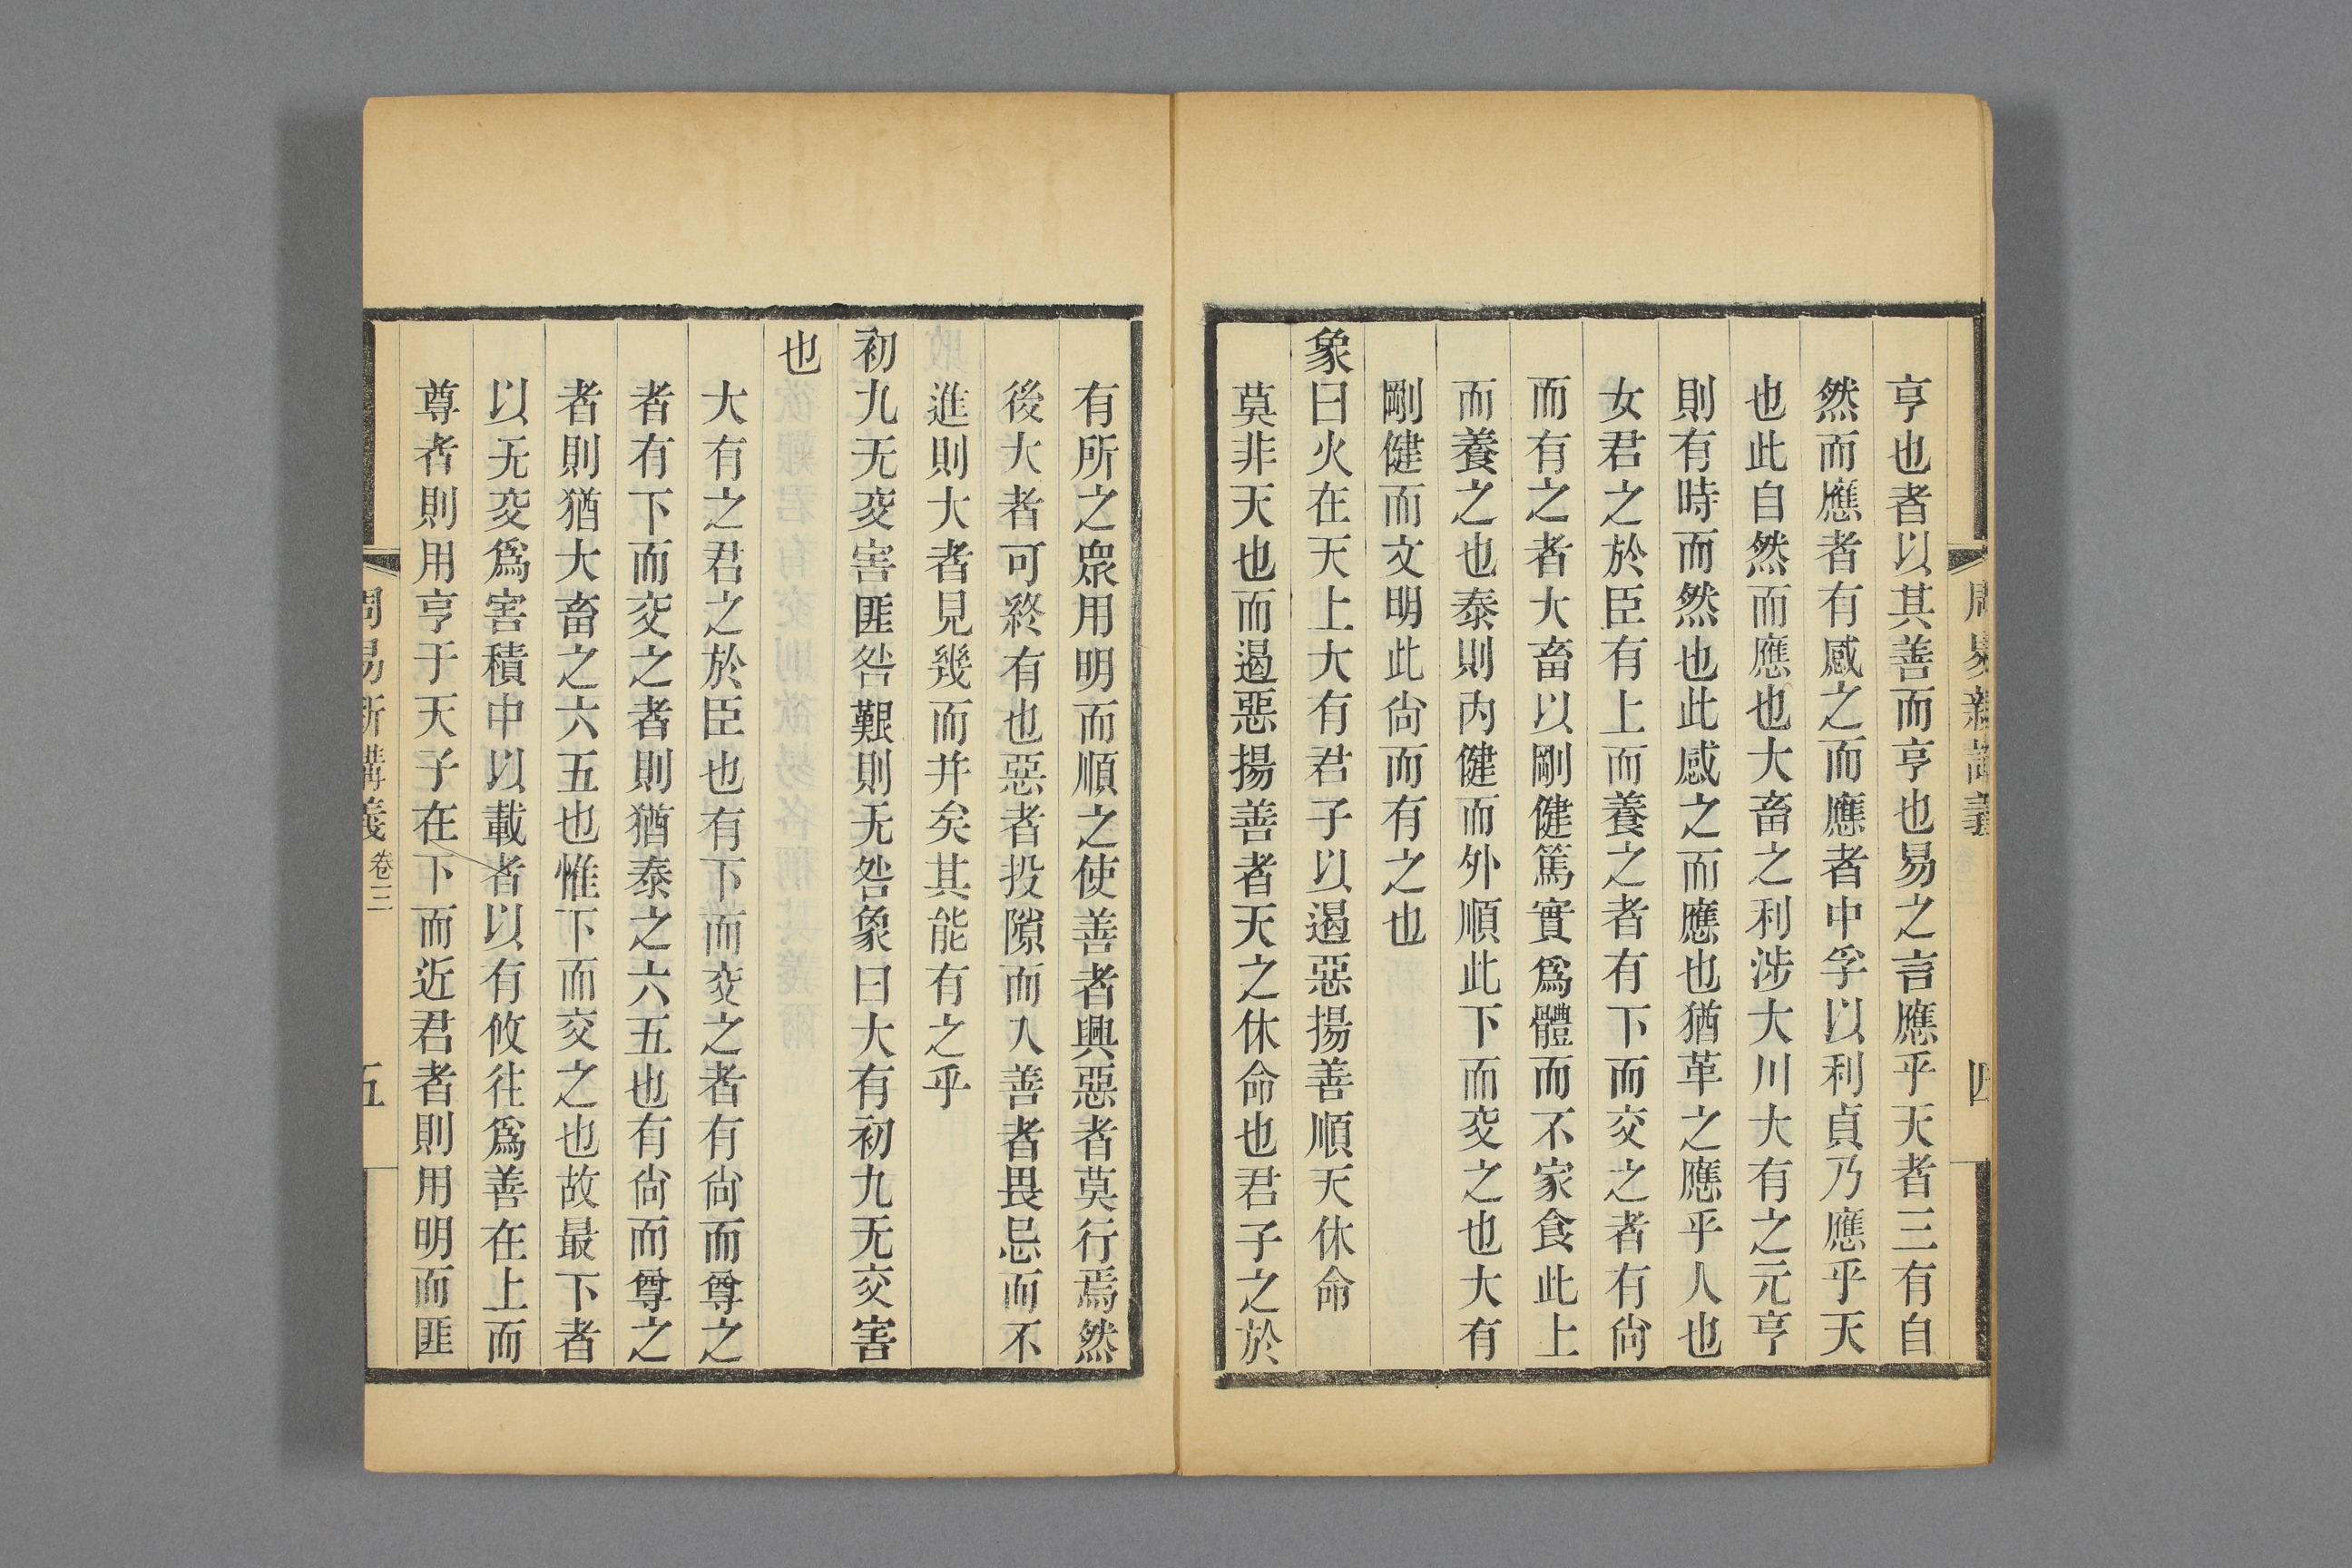 周易新講義
四
亨也者以其善而亨也易之言應乎天者三有自
然而應者有感之而應者中孚以利貞乃應乎天
也此自然而應也大畜之利涉大川大有之元亨
則有時而然也此感之而應也猶革之應乎人也
女君之於臣有上而養之者有下而交之者有尙
而有之者大畜以剛健篤實爲體而不家食此上
而養之也泰則內健而外順此下而交之也大有
剛健而文明此尙而有之也
象曰火在天上大有君子以遏惡揚善順天休命
莫非天也而遏惡揚善者天之休命也君子之於
有所之衆用明而順之使善者興惡者莫行焉然
後大者可終有也惡者投隙而入善者畏忌而不
進則大者見幾而并矣其能有之乎
初九无交害匪咎艱則无咎象曰大有初九无交害
也
大有之君之於臣也有下而交之者有尙而尊之
者有下而交之者則猶泰之六五也有尙而尊之
者則猶大畜之六五也惟下而交之也故最下者
以无交爲害積中以載者以有攸往爲善在上而
尊者則用亨于天子在下而近君者則用明而匪
周易新講義 卷三
五